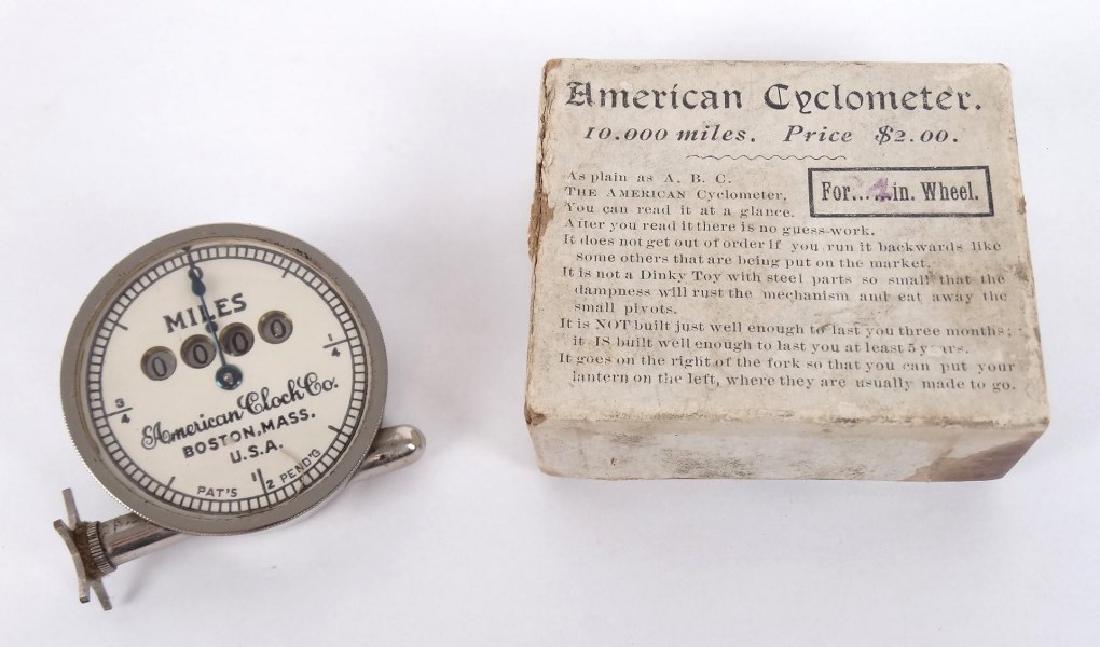 0
MILES
0 0 0 0
1/4
3/4
American Clock Co.
BOSTON, MASS.
U.S.A.
PAT'S 1/2 PEND'G
American Cyclometer.
10.000 miles. Price $2.00.
As plain as A. B. C.
THE AMERICAN Cyclometer,
You can read it at a glance.
For... ...in. Wheel.
After you read it there is no guess-work.
It does not get out of order if you run it backwards like
some others that are being put on the market.
It is not a Dinky Toy with steel parts so small that the
dampness will rust the mechanism and eat away the
small pivots.
It is NOT built just well enough to last you three months;
it IS built well enough to last you at least 5 years.
It goes on the right of the fork so that you can put your
lantern on the left, where they are usually made to go.